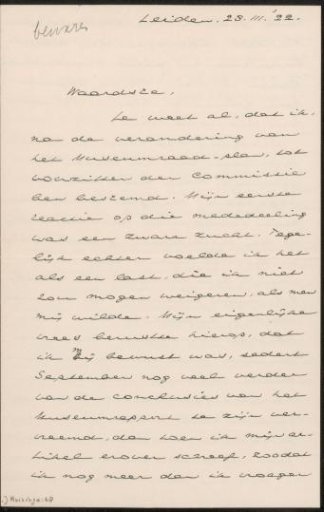 bewaren
Leiden, 28.III.'22.
Waardste,
Je weet al, dat ik,
na de verandering van
het Museumraad-plan, tot
voorzitter der Commissie
ben bestemd. Mijn eerste
reactie op die mededeeling
was een zware zucht. Tege-
lijk echter voelde ik het
als een last, die ik niet
zou mogen weigeren, als men
mij wilde. Mijn eigenlijke
vrees berustte hierop, dat
ik mij bewust was, sedert
September nog veel verder
van de conclusies van het
Museumrapport te zijn ver-
vreemd, dan toen ik mijn ar-
tikel erover schreef, zoodat
ik nog meer dan ik vroeger